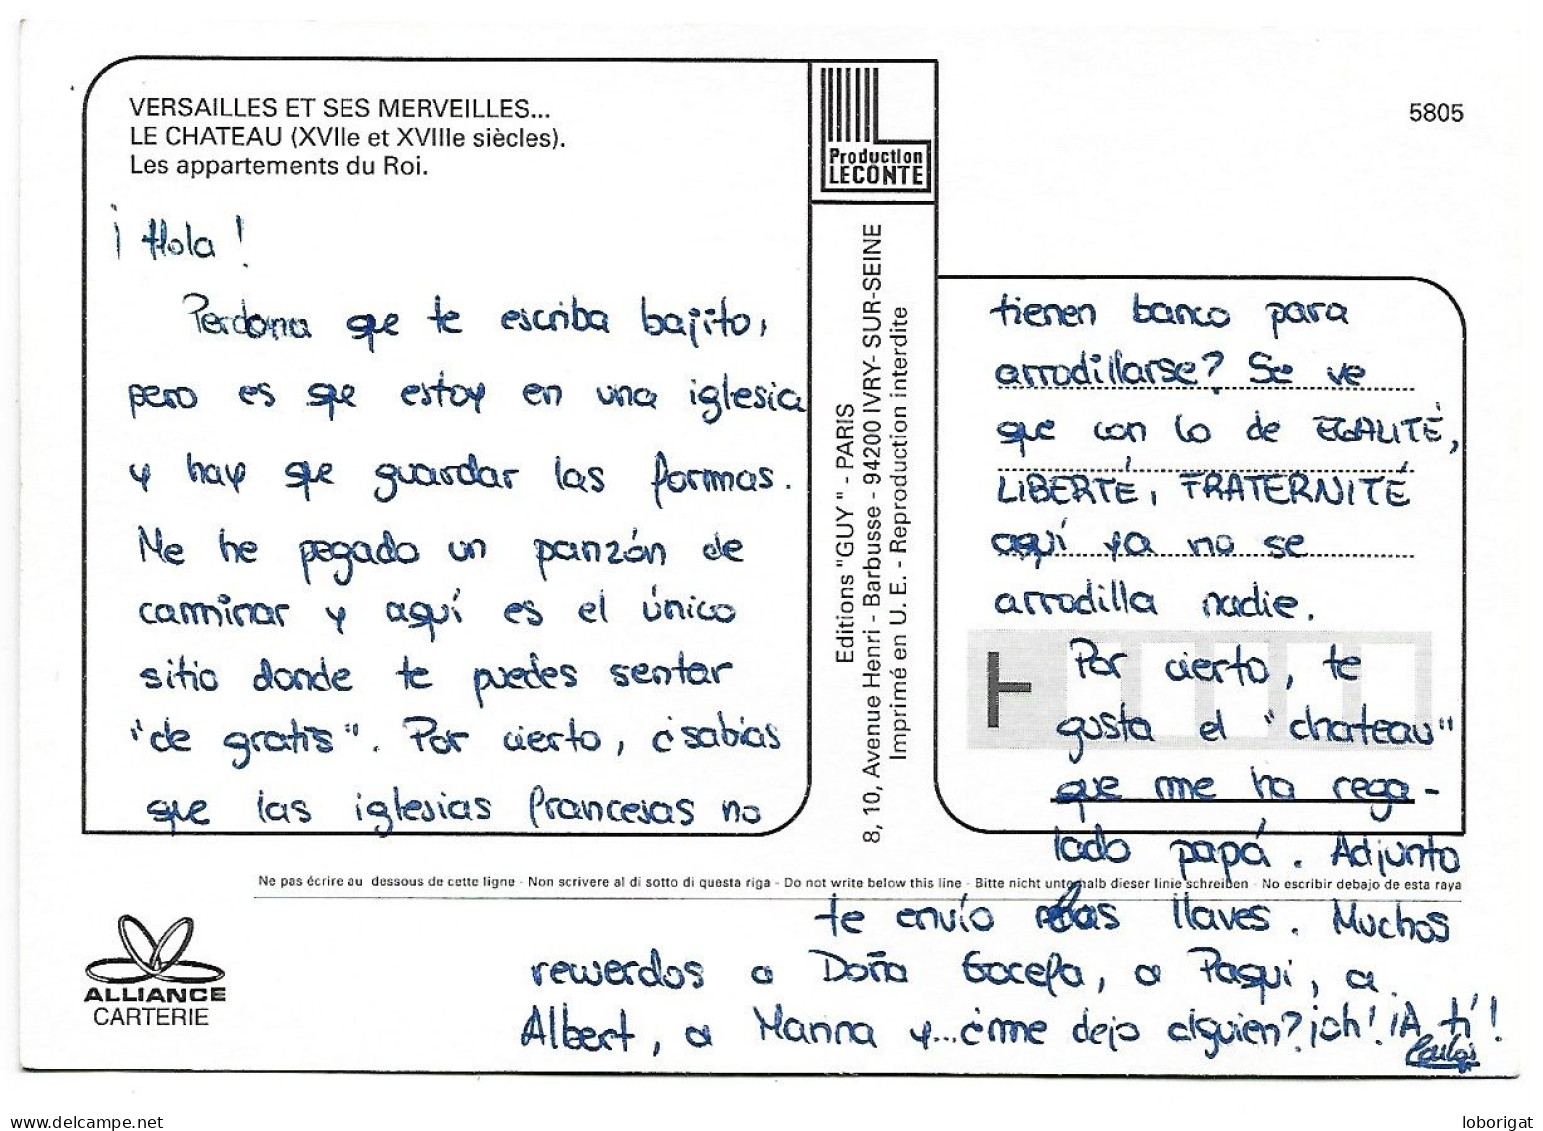 VERSAILLES ET SES MERVEILLES...
LE CHATEAU (XVIIe et XVIIIe siècles).
Les appartements du Roi.
¡Hola!
Perdona que te escriba bajito,
pero es que estoy en una iglesia
y hay que guardar las formas.
Me he pegado un panzón de
caminar y aquí es el único
sitio donde te puedes sentar
"de gratis". Por cierto, ¿sabías
que las iglesias francesas no
Production
LECONTE
Editions "GUY" - PARIS
8, 10, Avenue Henri - Barbusse - 94200 IVRY- SUR-SEINE
Imprimé en U. E. - Reproduction interdite
5805
tienen banco para
arrodillarse? Se ve
que con lo de EGALITÉ,
LIBERTÉ, FRATERNITÉ
aquí ya no se
arrodilla nadie.
Por cierto, te
gusta el "chateau"
que me ha rega-
lado papá. Adjunto
Ne pas écrire au dessous de cette ligne - Non scrivere al di sotto di questa riga - Do not write below this line - Bitte nicht unterhalb dieser linie schreiben - No escribir debajo de esta raya
te envío las llaves. Muchos
recuerdos a Doña Gacela, a Paqui, a
Albert, a Marina y... ¿me dejo alguien? ¡oh! ¡A ti!
Carlos
ALLIANCE
CARTERIE
www.delcampe.net
loborigat